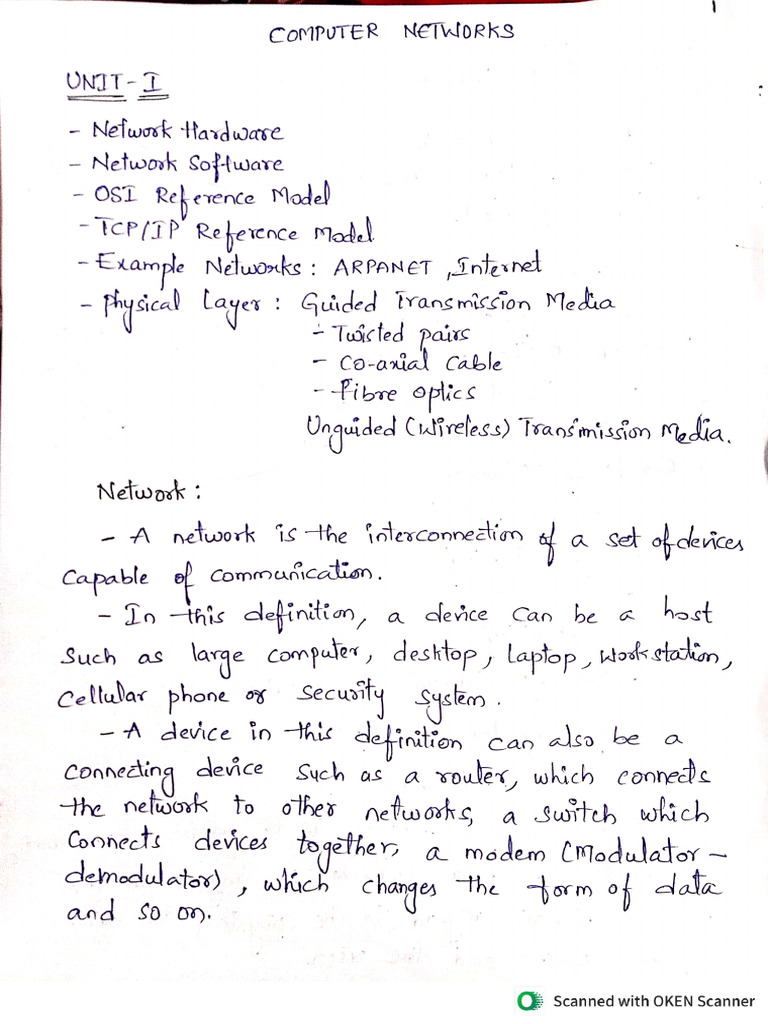 1
COMPUTER NETWORKS
UNIT-I
- Network Hardware
- Network Software
- OSI Reference Model
- TCP/IP Reference Model.
- Example Networks: ARPANET, Internet
- Physical Layer: Guided Transmission Media
- Twisted pairs
- Co-axial Cable
- Fibre optics
Unguided (Wireless) Transmission Media.
Network:
- A network is the interconnection of a set of devices
capable of communication.
- In this definition, a device can be a host
such as large computer, desktop, laptop, workstation,
cellular phone or security system.
- A device in this definition can also be a
connecting device such as a router, which connects
the network to other networks, a switch which
connects devices together, a modem (Modulator-
demodulator), which changes the form of data
and so on.
Scanned with OKEN Scanner